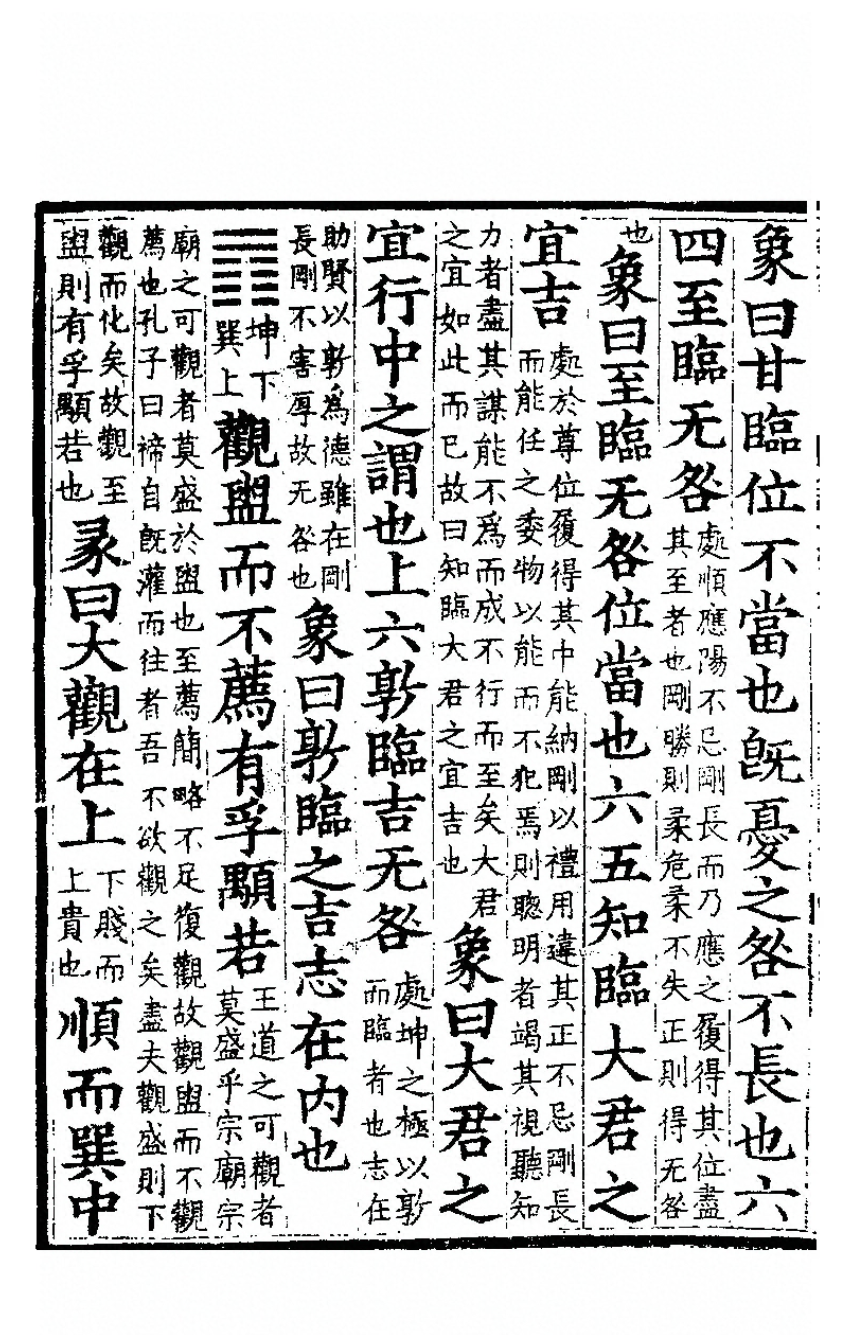 象曰甘臨位不當也旣憂之咎不長也六
四至臨无咎處順應陽不忌剛長而乃應之履得其位盡其至者也剛勝則柔危柔不失正則得无咎
也象曰至臨无咎位當也六五知臨大君之
宜吉處於尊位履得其中能納剛以禮用違其正不忌剛長而能任之委物以能而不犯焉則聦明者竭其視聽知
力者盡其謀能不爲而成不行而至矣大君之宜如此而已故曰知臨大君之宜吉也象曰大君之
宜行中之謂也上六敦臨吉无咎處坤之極以敦而臨者也志在
助賢以敦爲德雖在剛長剛不害厚故无咎也象曰敦臨之吉志在内也
䷓坤下巽上觀盥而不薦有孚顒若王道之可觀者莫盛乎宗廟宗
廟之可觀者莫盛於盥也至薦簡略不足復觀故觀盥而不觀薦也孔子曰禘自旣灌而往者吾不欲觀之矣盡夫觀盛則下
觀而化矣故觀至盥則有孚顒若也彖曰大觀在上下賤而上貴也順而巽中